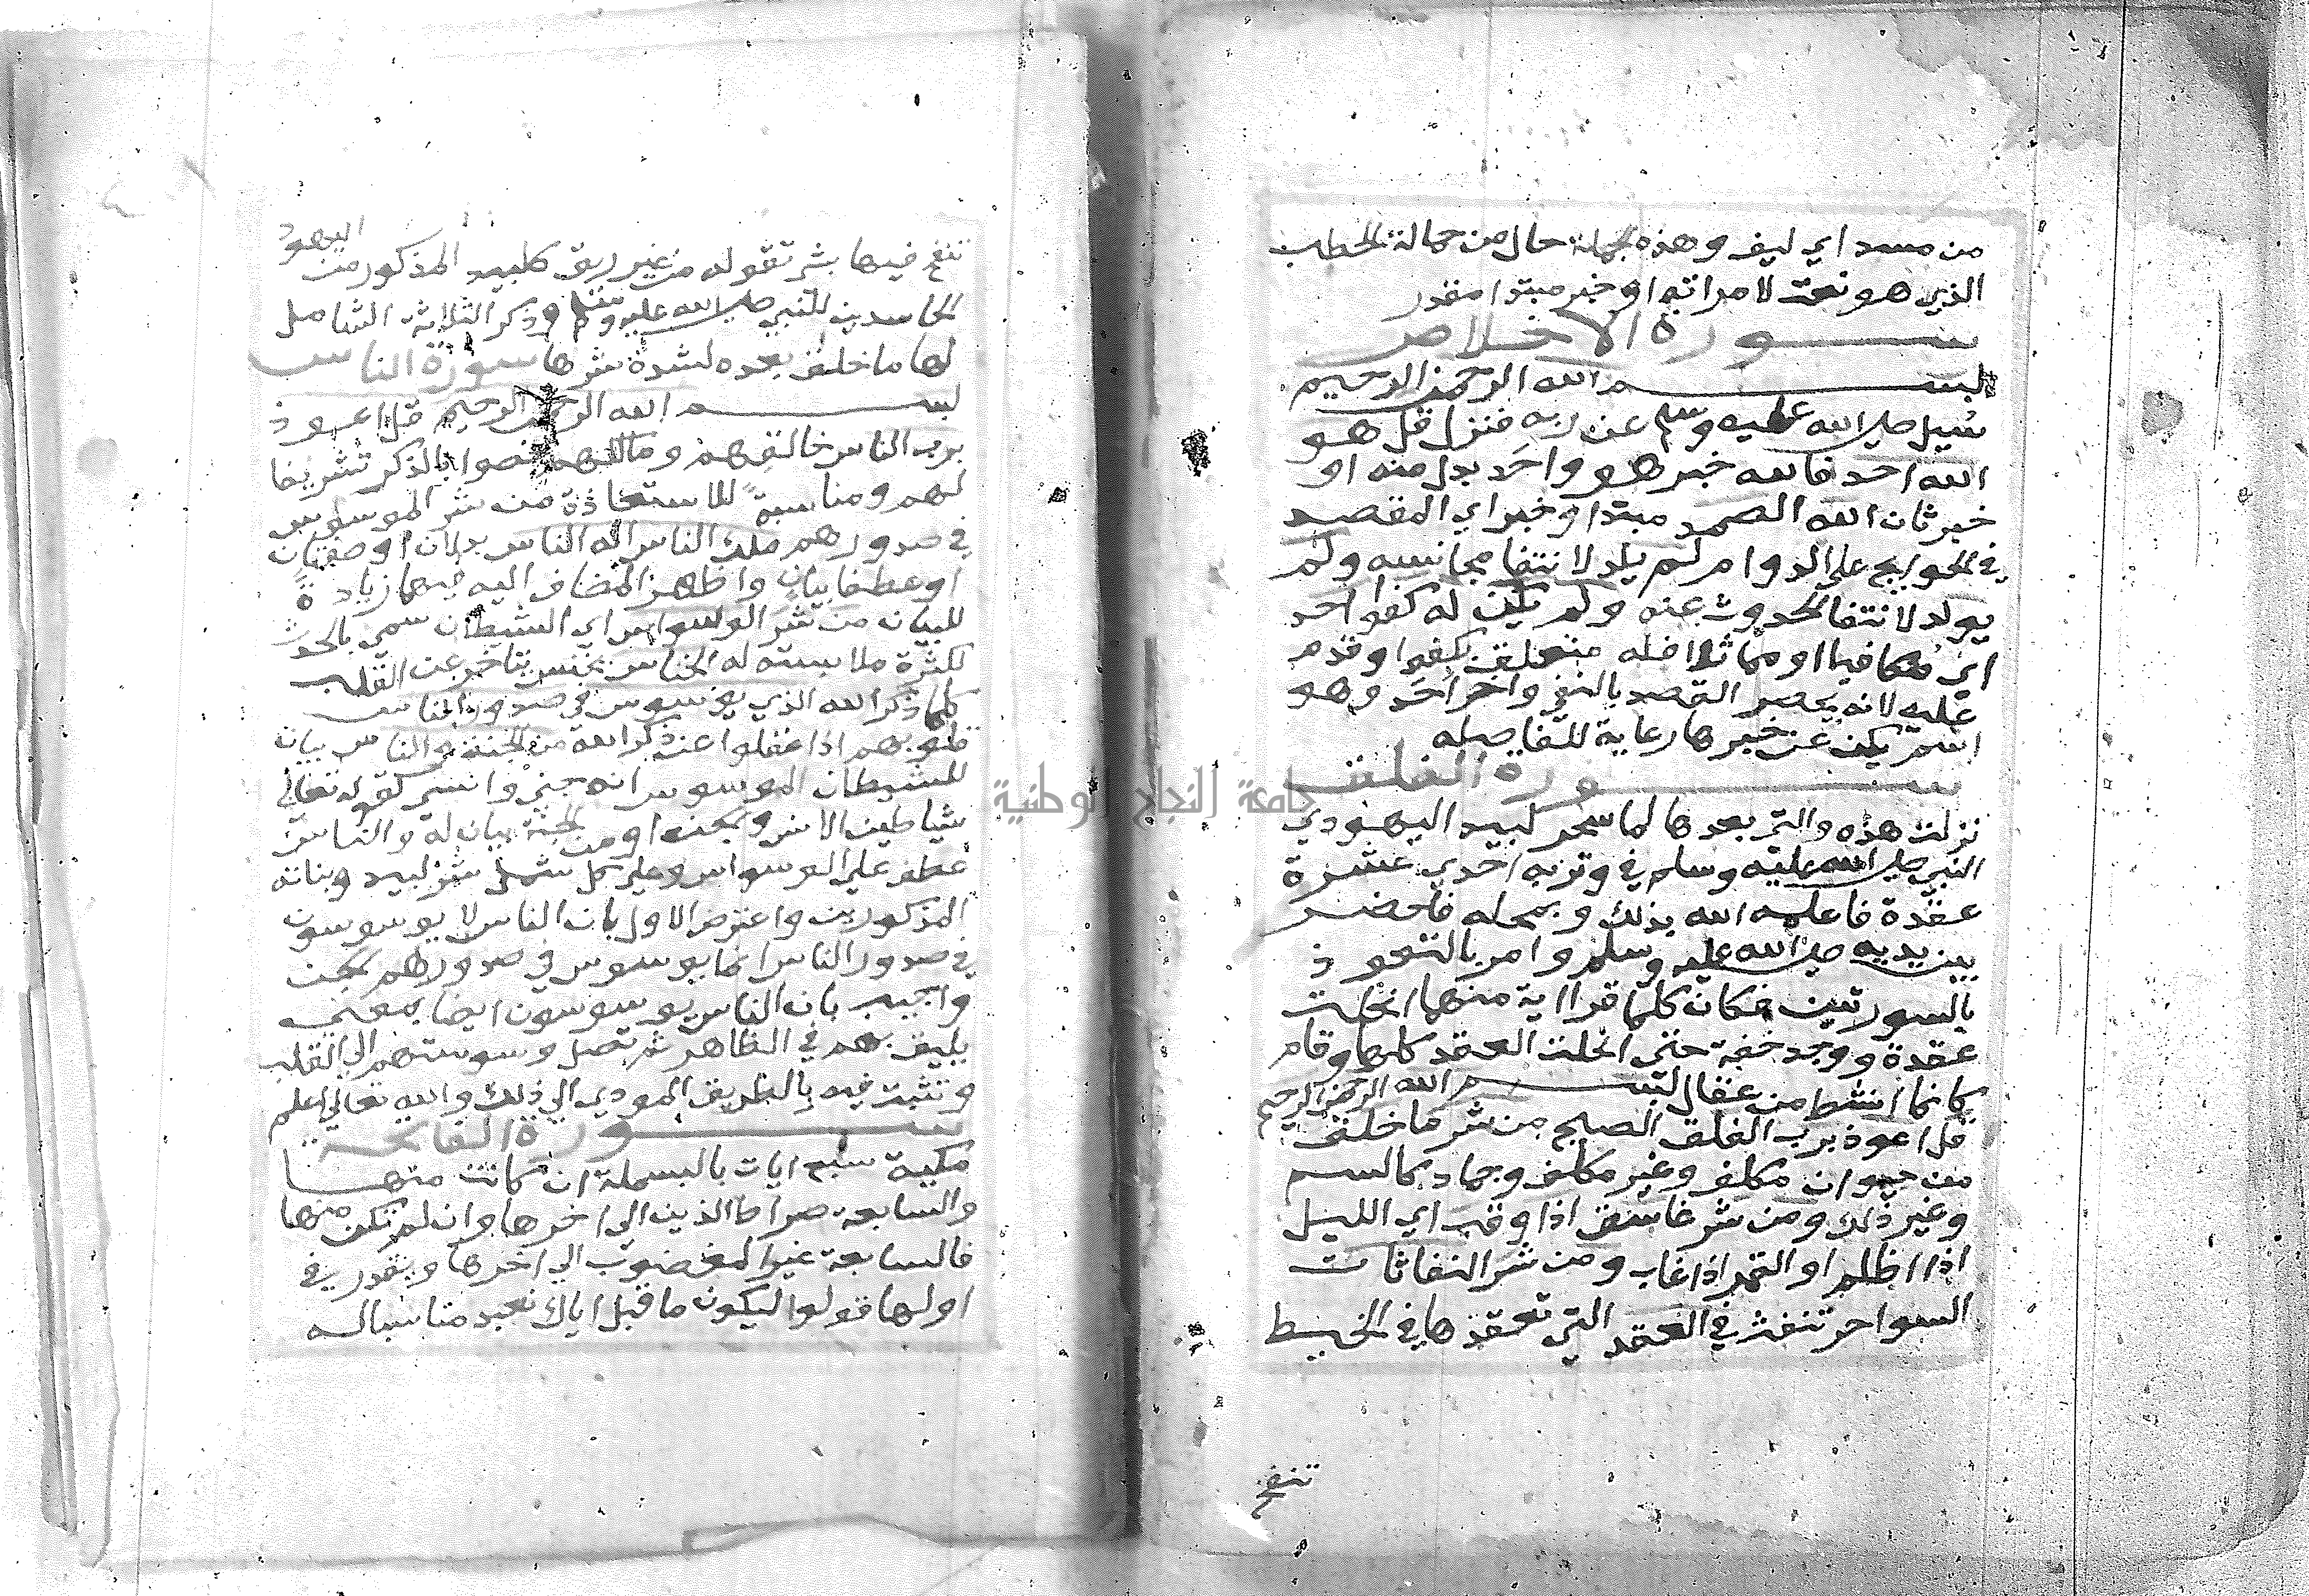 من مسد اي ليف وهذه الجملة حال من حمالة الحطب
الذي هو نعت لامراته او خبر مبتدا مقدر
سورة الاخلاص
بسم الله الرحمن الرحيم
سُيل صلى الله عليه وسلم عن ربه فنزل قل هو
الله احد فالله خبر هو واحد بدل منه او
خبر ثان الله الصمد مبتدا وخبر اي المقصود
في الحوايج على الدوام لم يلد لانتفا مجانسه ولم
يولد لانتفا الحدوث عنه ولم يكن له كفوا احد
اي مكافيا او مماثلا فله متعلق بكفوا وقدم
عليه لانه محط القصد بالنفي واخر احد وهو
اسم يكن عن خبرها رعاية للفاصله
سورة الفلق
نزلت هذه والتي بعدها لما سحر لبيد اليهودي
النبي صلى الله عليه وسلم في وتر به احدي عشرة
عقدة فاعلمه الله بذلك وبمحله فاحضر
بين يديه صلى الله عليه وسلم وامر بالتعوذ
بالسورتين فكان كلما قرا اية منهما انحلت
عقدة ووجد خفة حتى انحلت العقد كلها وقام
كانما انشط من عقال بسم الله الرحمن الرحيم
قل اعوذ برب الفلق الصبح من شر ما خلق
من حيوان مكلف وغير مكلف وجماد كالسم
وغير ذلك ومن شر غاسق اذا وقب اي الليل
اذا اظلم او القمر اذا غاب ومن شر النفاثات
السواحر تنفث في العقد التي تعقدها في الخيط
تنفخ
تنفخ فيها بشي تقوله من غير ريق كلبيد المذكور من
اليهود
الحاسدين للنبي صلى الله عليه وسلم وذكر الثلاثة الشامل
لها ما خلق بعده لشدة شرها سورة الناس
بسم الله الرحمن الرحيم قل اعوذ
برب الناس خالقهم ومالكهم خصوا بالذكر تشريفا
لهم ومناسبة للاستعاذة من شر الموسوس
في صدورهم ملك الناس اله الناس بدلان او صفتان
او عطفا بيان واظهر المضاف اليه فيهما زيادة
للبيان من شر الوسواس اي الشيطان سمي بالحدث
لكثرة ملابسته له الخناس يخنس يتاخر عن القلب
كلما ذكر الله الذي يوسوس في صدور الناس
قلوبهم اذا غفلوا عن ذكر الله من الجنة والناس بيان
للشيطان الموسوس انه جني وانسي كقوله تعالى
شياطين الانس والجن او من الجنة بيان له والناس
عطف على الوسواس وعلى كل شمل شر لبيد وبناته
المذكورين واعترض الاول بان الناس لا يوسوسون
في صدور الناس انما يوسوس في صدورهم الجن
واجيب بان الناس يوسوسون ايضا بمعنى
يليق بهم في الظاهر ثم تصل وسوستهم الى القلب
وتثبت فيه بالطريق المودي الى ذلك والله تعالى اعلم
سورة الفاتحة
مكية سبع ايات بالبسملة ان كانت منها
والسابعة صراط الذين الى اخرها وان لم تكن منها
فالسابعة غير المغضوب الى اخرها ويقدر في
اولها قولوا ليكون ما قبل اياك نعبد مناسبا له
جامعة النجاح الوطنية